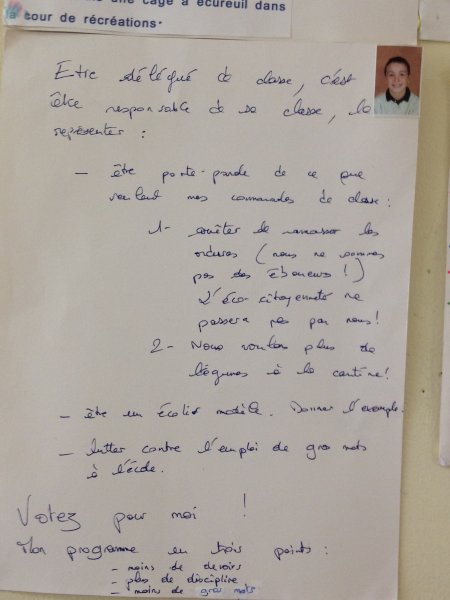 une cage à écureuil dans
la cour de récréations.
Etre délégué de classe, c'est
être responsable de sa classe, la
représenter :
- être porte-parole de ce que
veulent mes camarades de classe :
1- arrêter de ramasser les
ordures (nous ne sommes
pas des éboueurs !)
L'éco-citoyenneté ne
passera pas par nous!
2- Nous voulons plus de
légumes à la cantine!
- être un écolier modèle. Donner l'exemple.
- lutter contre l'emploi de gros mots
à l'école.
Votez pour moi !
Mon programme en trois points :
- moins de devoirs
- plus de discipline
- moins de gros mots